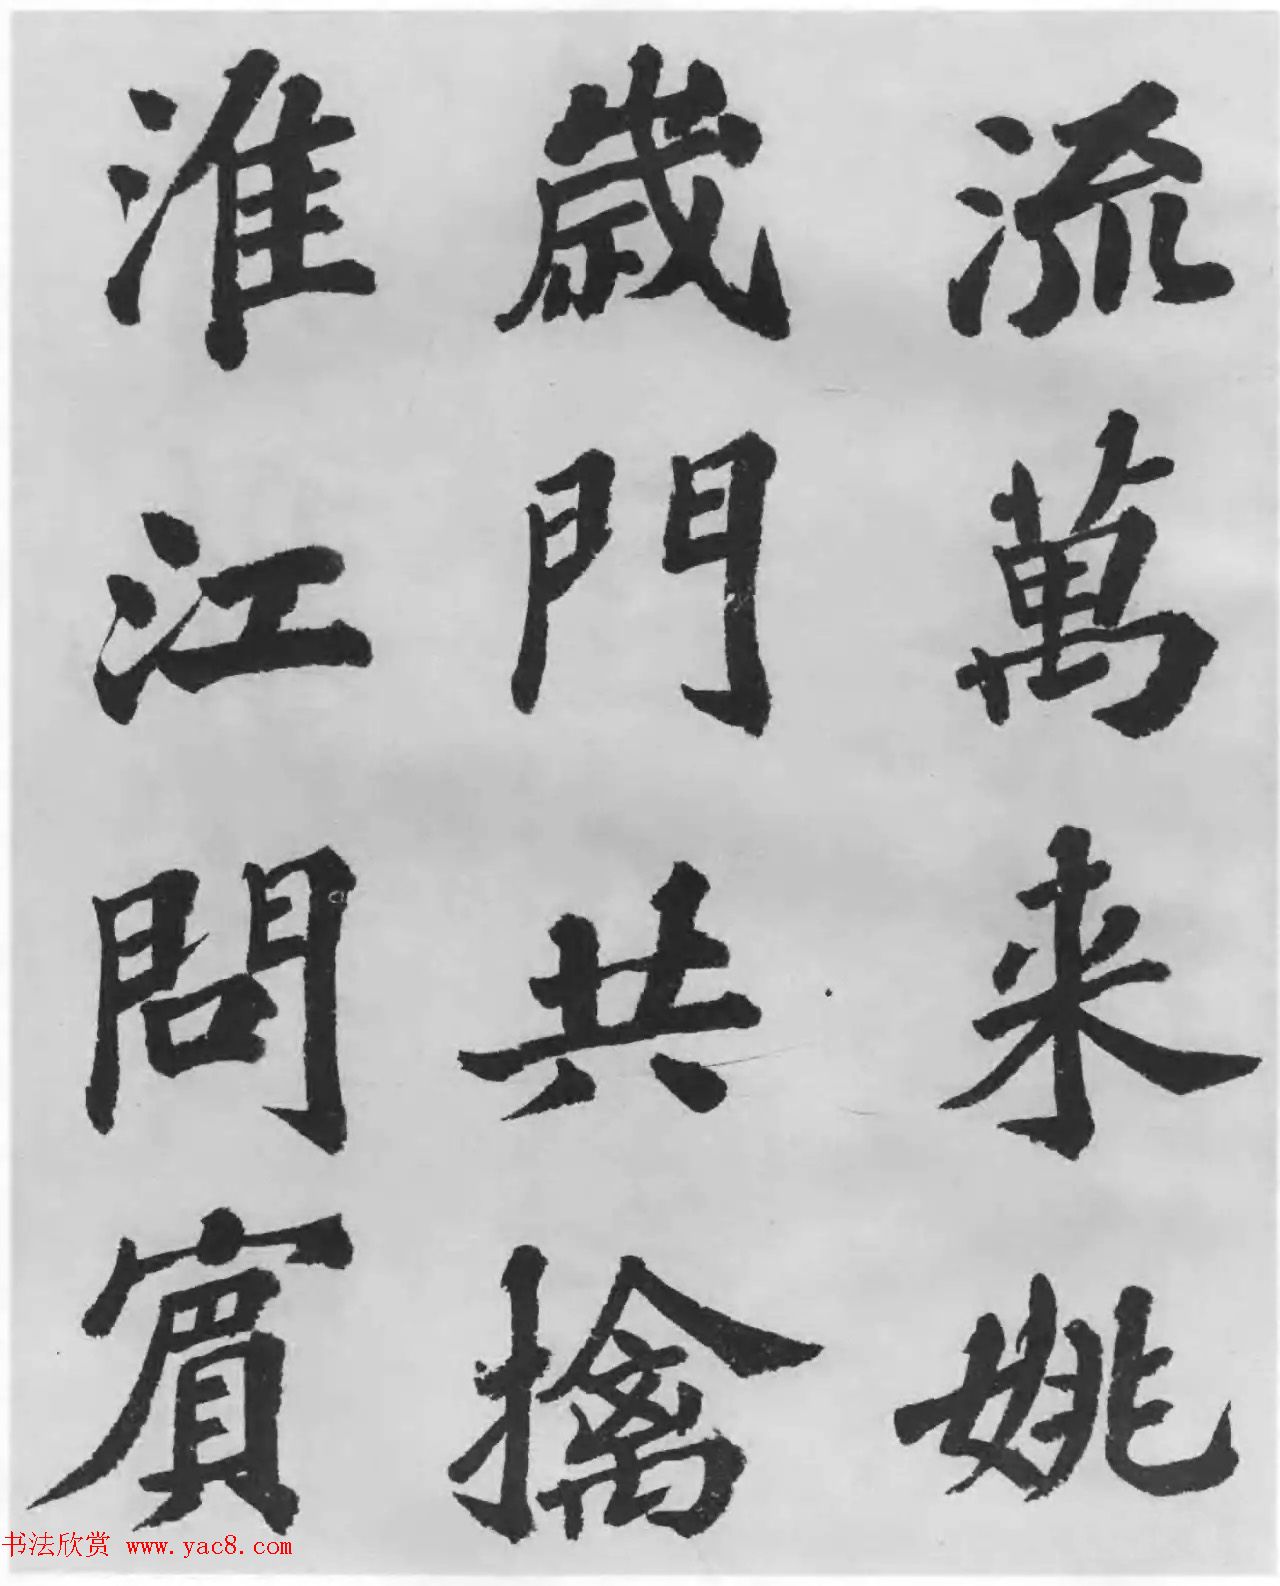 流萬来姚
歲門共擒
淮江問賓
书法欣赏 www.yac8.com